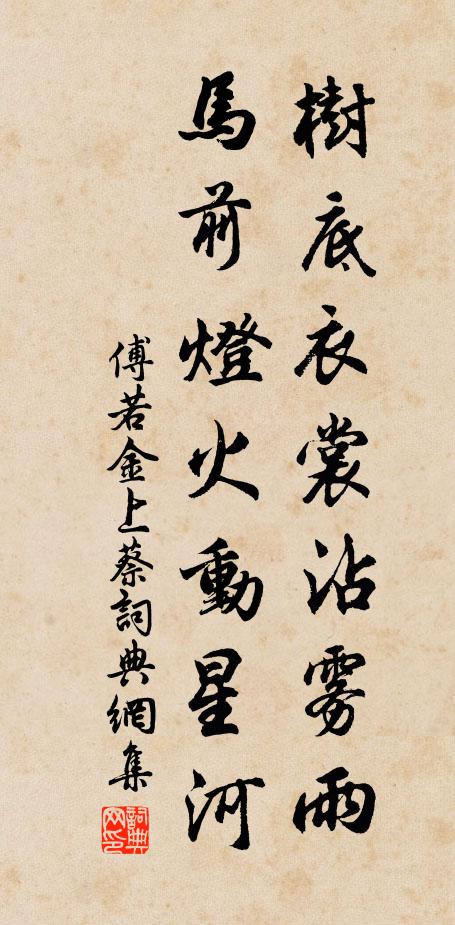 樹底衣裳沾雾雨
馬前燈火動星河
傅若金上蔡詞典網集
詞典
网印